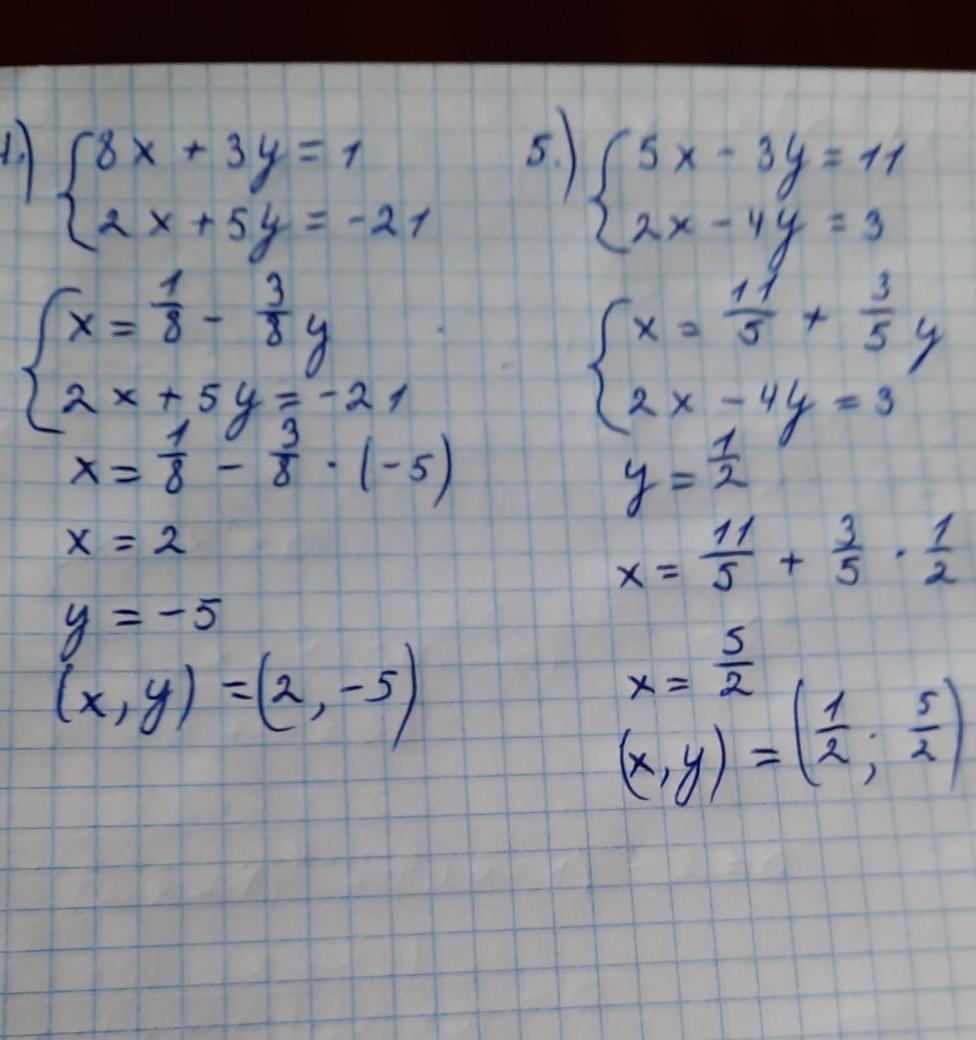 1.) { 8x + 3y = 1
2x + 5y = -21
{ x = 1/8 - 3/8 y
2x + 5y = -21
x = 1/8 - 3/8 · (-5)
x = 2
y = -5
(x, y) = (2, -5)
5.) { 5x - 3y = 11
2x - 4y = 3
{ x = 11/5 + 3/5 y
2x - 4y = 3
y = 1/2
x = 11/5 + 3/5 · 1/2
x = 5/2
(x, y) = (1/2 ; 5/2)